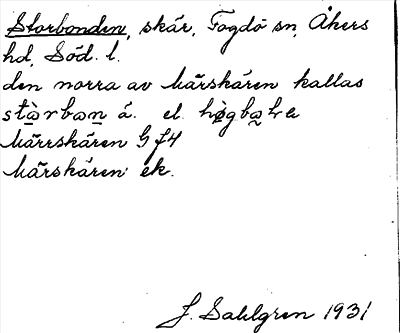 Storbonden, skär, Fogdö sn, Åkers
hd, Söd. l.
den norra av Märskären kallas
stàrban á. el. hǿgba
Märrskären G f4
Märskären ek.
J. Sahlgren 1931